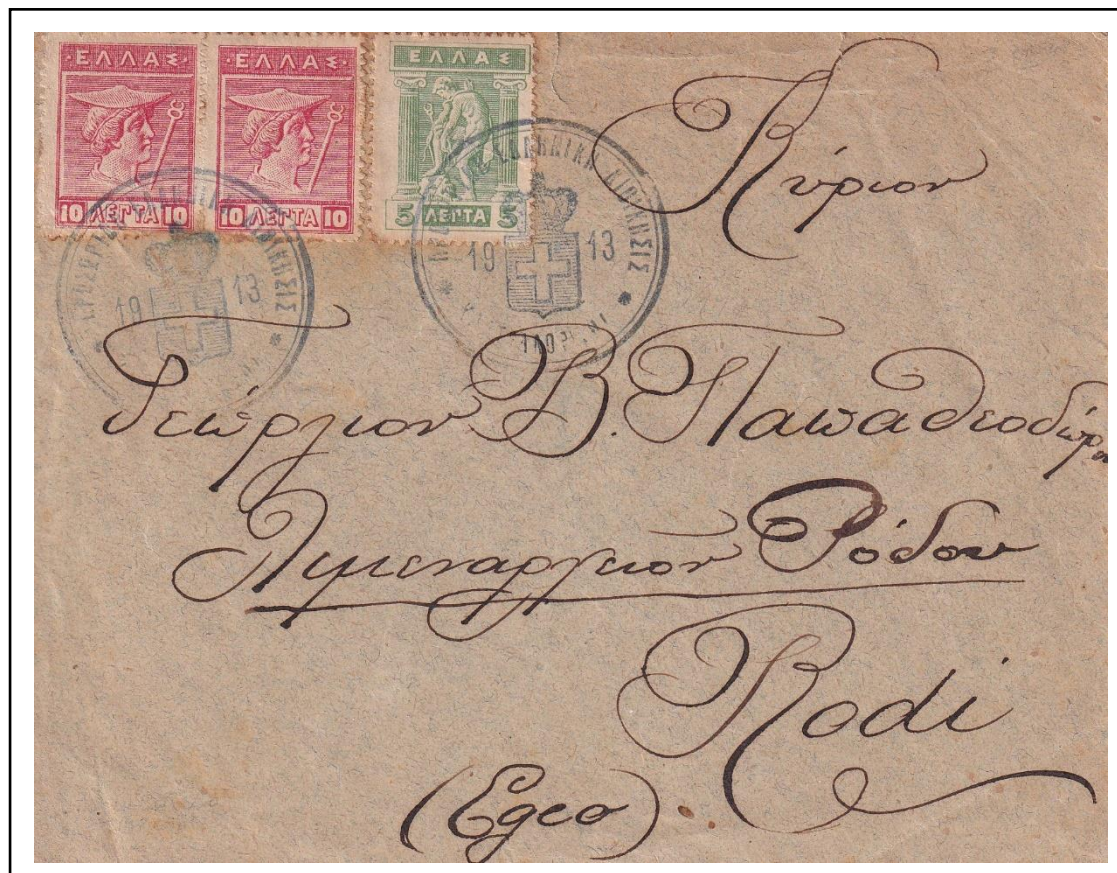 ·ΕΛΛΑΣ·
10 ΛΕΠΤΑ 10
·ΕΛΛΑΣ·
10 ΛΕΠΤΑ 10
ΕΛΛΑΣ
5 ΛΕΠΤΑ 5
ΔΙΟΙΚΗΣΙΣ
19 13
ΕΛΛΗΝΙΚΗ ΔΙΟΙΚΗΣΙΣ
19 13
Κύριον
Γεώργιον Β. Παπαθεοδώρου
Λιμεναρχείον Ρόδου
Rodi
(Egeo).